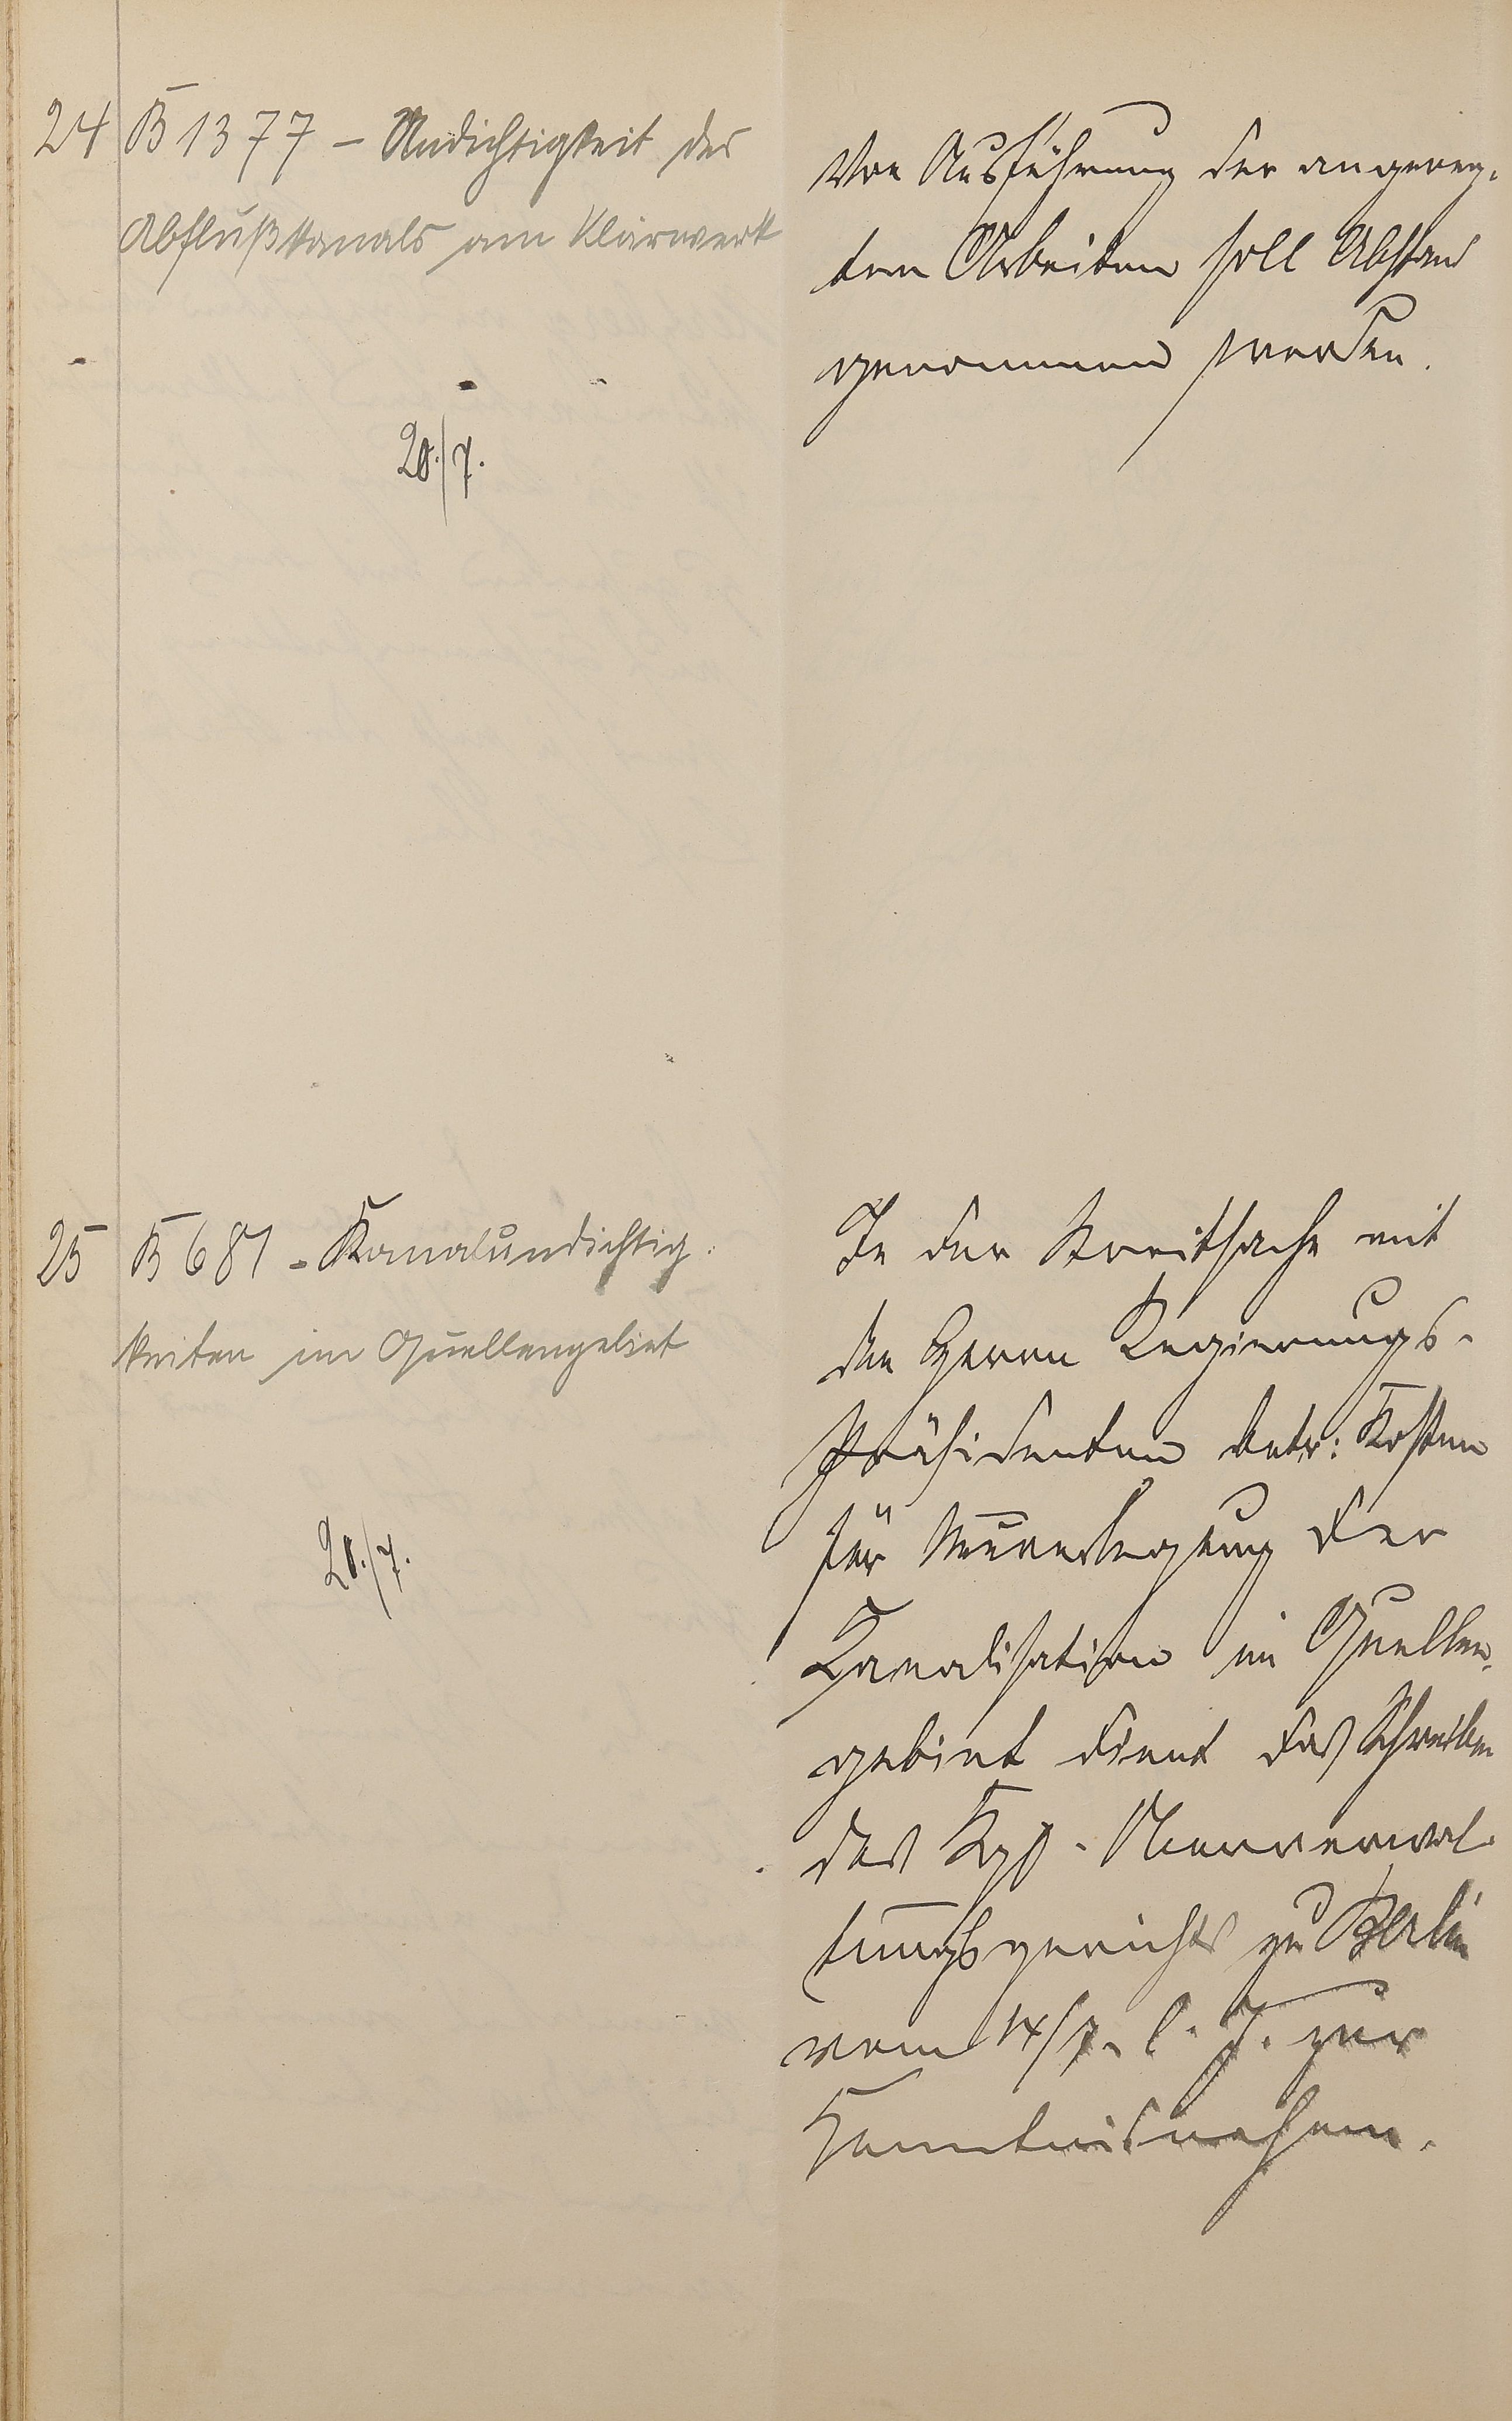 24 B 1377 – Undichtigkeit des
Abflußkanals am Klärwerk
20./7.
Von Ausführung der angereg-
ten Arbeiten soll Abstand
genommen werden.
25 B 681 - Kanalundichtig-
keiten im Quellengebiet
20./7.
In der Streitsache mit
dem Herrn Regierungs-
Präsidenten betr: Kosten
für Neuverlegung der
Kanalisation im Quellen-
gebiet dient das Schreiben
des Kgl. Oberverwal-
tungsgerichts zu Berlin
vom 14/7. l. J. zur
Kenntnisnahme.